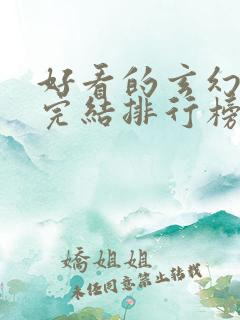 好看的玄幻
完结排行榜
娇姐姐
未经同意禁止转载